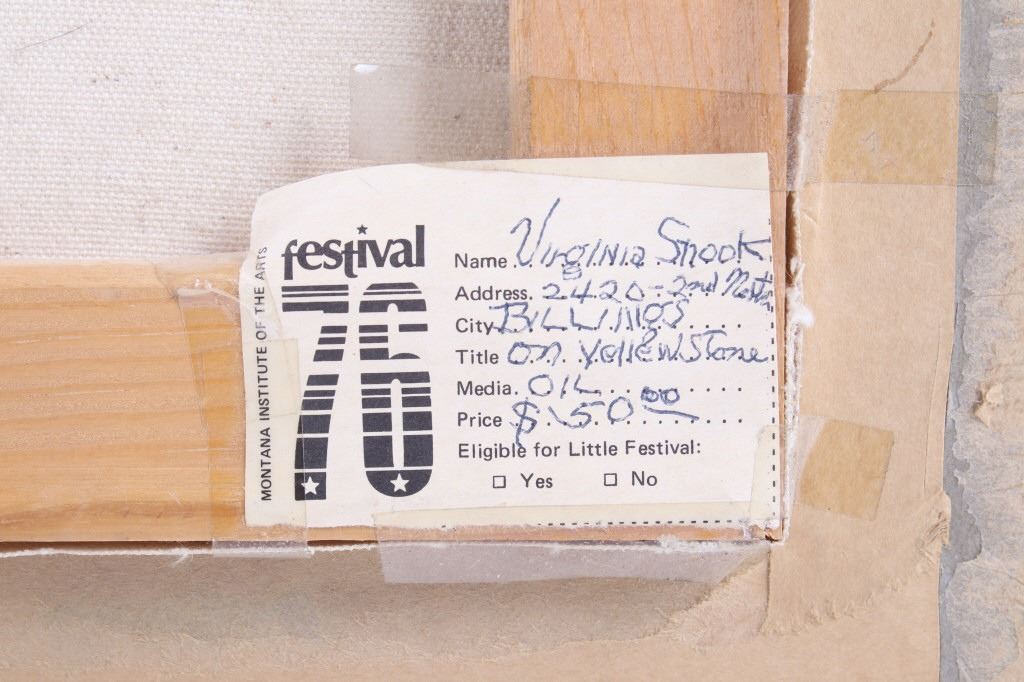 MONTANA INSTITUTE OF THE ARTS
festival
76
Name. Virginia Snook
Address. 2420 - 2nd North
City BILLINGS
Title On Yellowstone
Media. OIL
Price $ 50.00
Eligible for Little Festival:
☐ Yes ☐ No